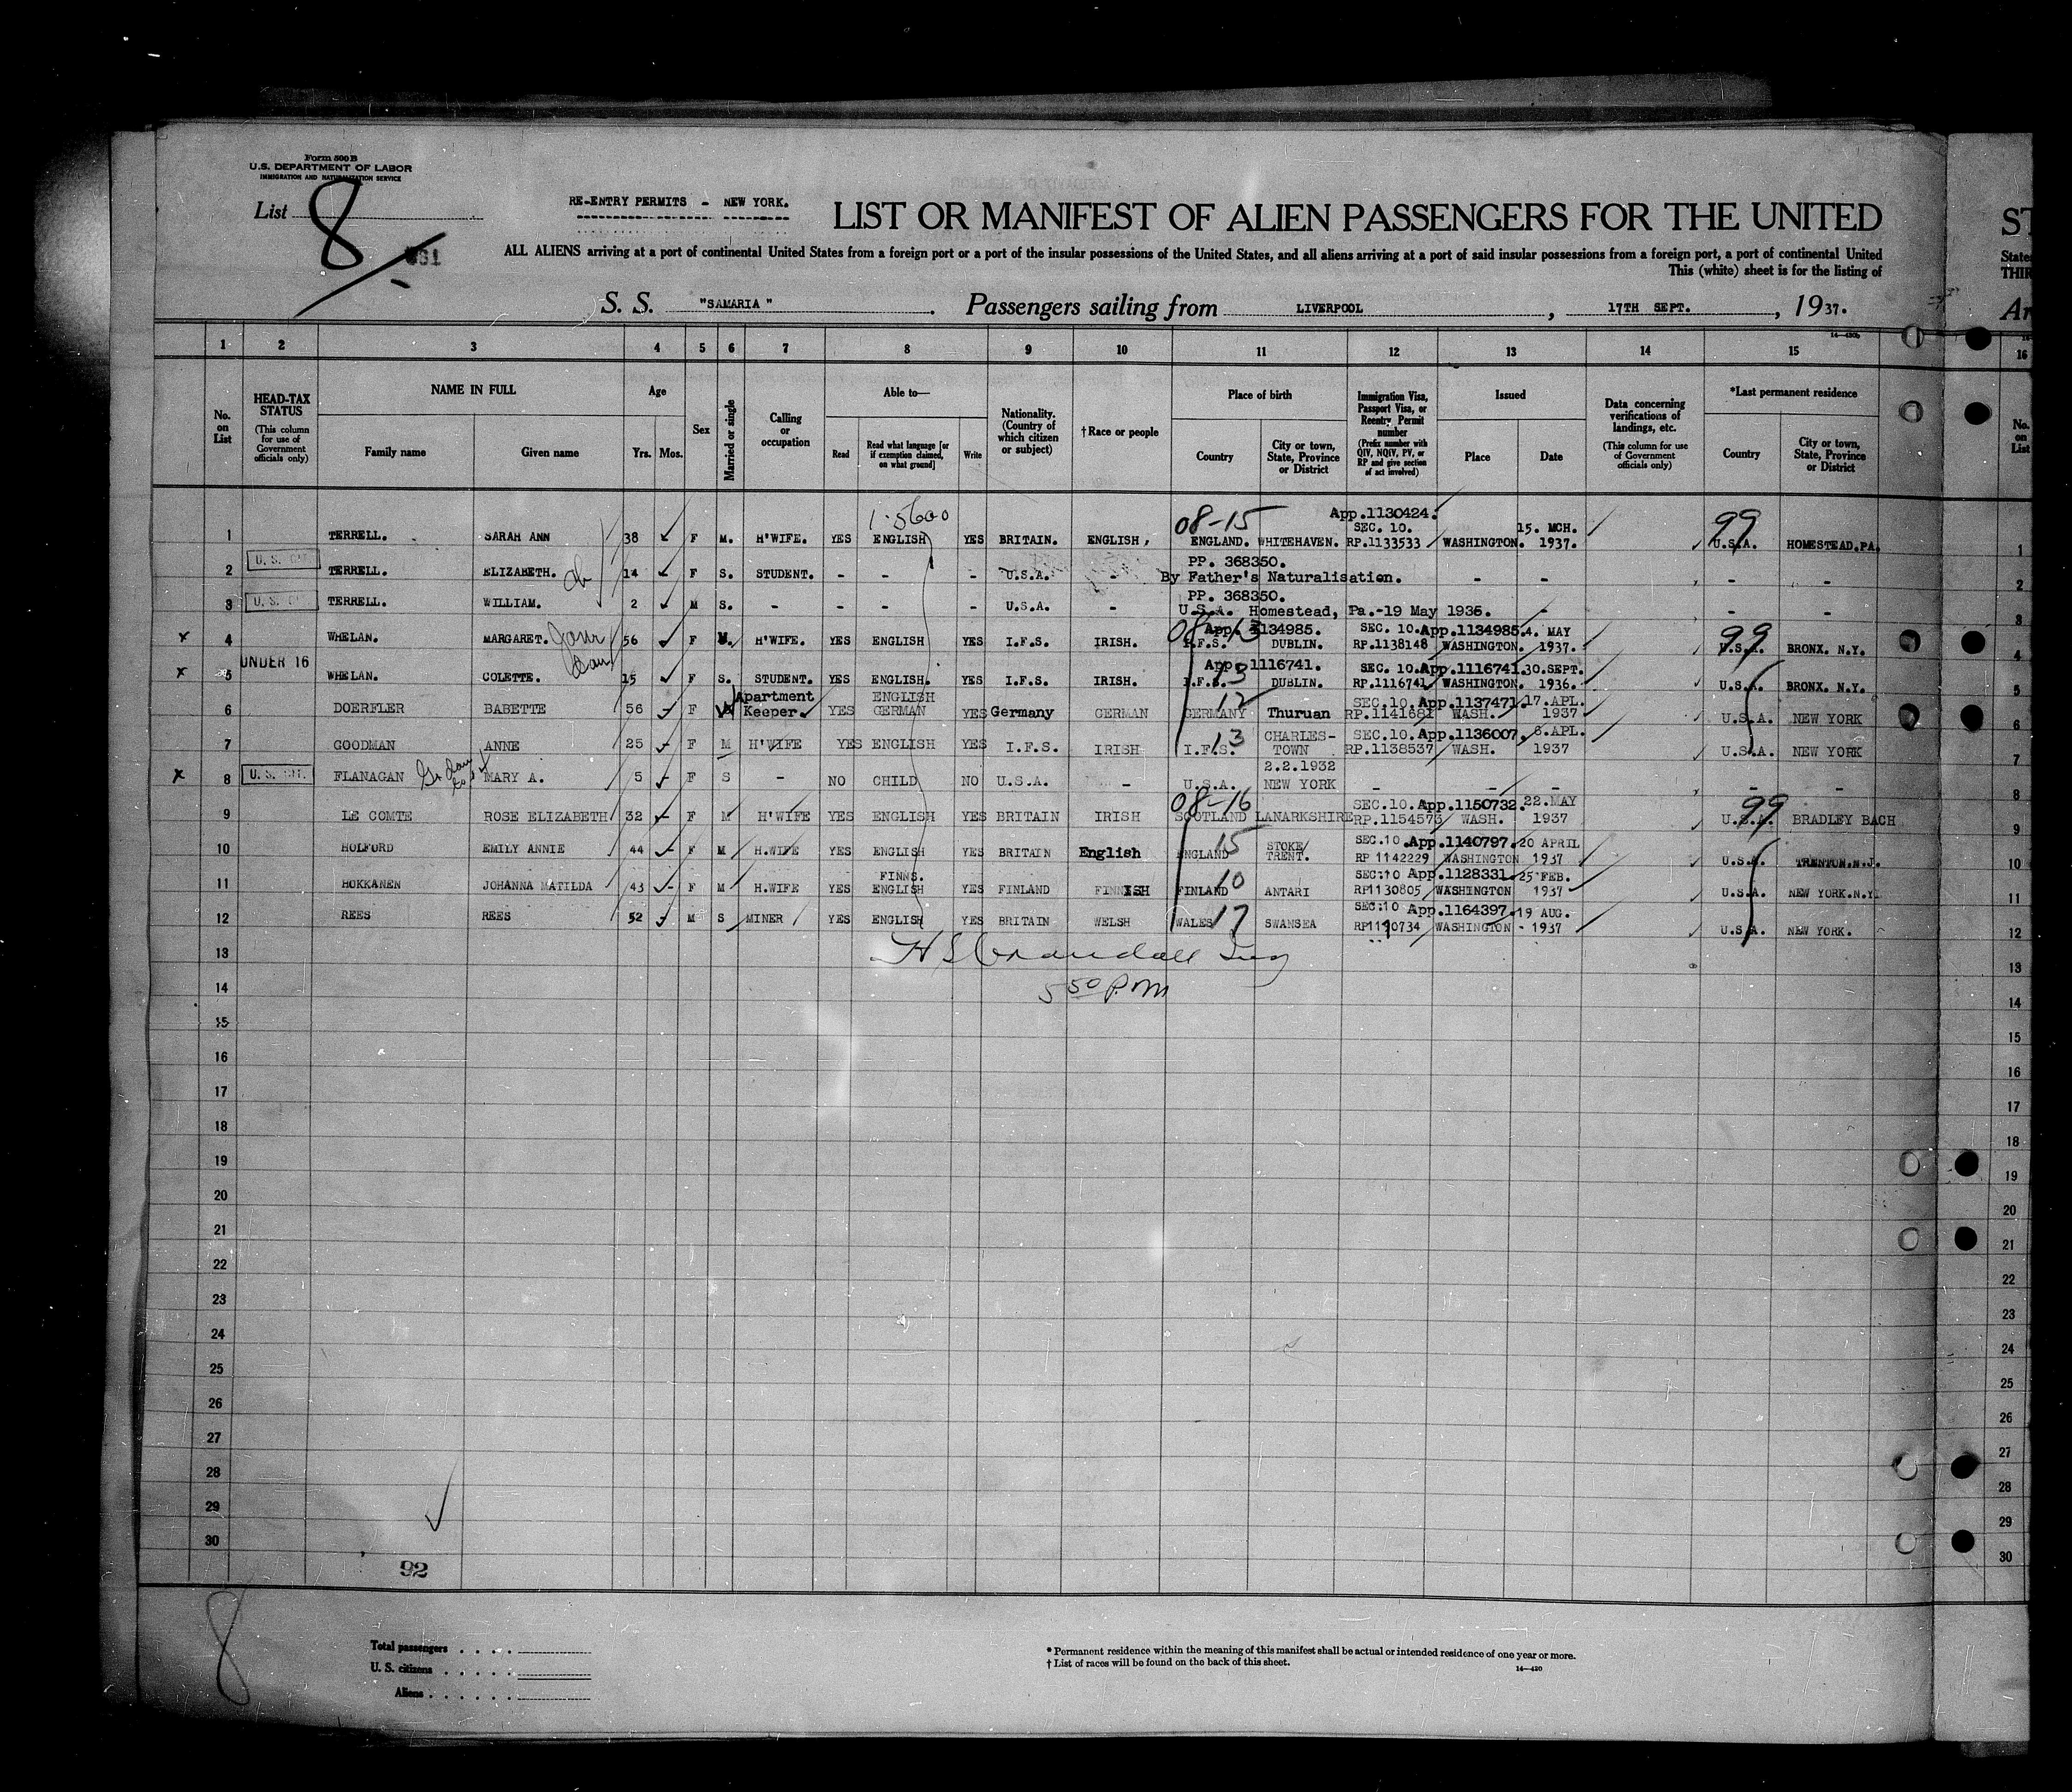 Form 500 B
U.S. DEPARTMENT OF LABOR
IMMIGRATION AND NATURALIZATION SERVICE
List 8
RE-ENTRY PERMITS - NEW YORK.
LIST OR MANIFEST OF ALIEN PASSENGERS FOR THE UNITED
ST
ALL ALIENS arriving at a port of continental United States from a foreign port or a port of the insular possessions of the United States, and all aliens arriving at a port of said insular possessions from a foreign port, a port of continental United
States
This (white) sheet is for the listing of
S. S. "SAMARIA". Passengers sailing from LIVERPOOL, 17TH SEPT., 1937.
1 2 3 4 5 6 7 8 9 10 11 12 13 14 15 16
No. on List
HEAD-TAX STATUS (This column for use of Government officials only)
NAME IN FULL Family name Given name
Age Yrs. Mos.
Sex
Married or single
Calling or occupation
Able to— Read Read what language [or if exemption claimed, on what ground] Write
Nationality. (Country of which citizen or subject)
†Race or people
Place of birth Country City or town, State, Province or District
Immigration Visa, Passport Visa, or Reentry Permit number (Prefix number with QIV, NQIV, PV, or RP and give section of act involved)
Issued Place Date
Data concerning verifications of landings, etc. (This column for use of Government officials only)
*Last permanent residence Country City or town, State, Province or District
No. on List
1-5600 08-15 App.1130424. SEC. 10. 15. MCH. 99
1 TERRELL. SARAH ANN 38 F M. H'WIFE. YES ENGLISH YES BRITAIN. ENGLISH, ENGLAND. WHITEHAVEN. RP.1133533 WASHINGTON. 1937. U.S.A. HOMESTEAD.PA. 1
U. S. CIT. PP. 368350.
2 TERRELL. ELIZABETH. 14 F S. STUDENT. - - - U.S.A. - By Father's Naturalisation. - - - - 2
U. S. CIT. PP. 368350.
3 TERRELL. WILLIAM. 2 M S. - - - - U.S.A. - U.S.A. Homestead, Pa.-19 May 1935. - - - 3
08-13 App. 1134985. SEC. 10. App.1134985. 4. MAY 99
4 WHELAN. MARGARET. 56 F M. H'WIFE. YES ENGLISH YES I.F.S. IRISH. I.F.S. DUBLIN. RP.1138148 WASHINGTON. 1937. U.S.A. BRONX. N.Y. 4
UNDER 16 App. 1116741. SEC. 10. App.1116741. 30.SEPT.
5 WHELAN. COLETTE. 15 F S. STUDENT. YES ENGLISH. YES I.F.S. IRISH. I.F.S. 13 DUBLIN. RP.1116741 WASHINGTON. 1936. U.S.A. BRONX. N.Y. 5
Apartment ENGLISH 12 SEC.10. App.1137471. 17.APL.
6 DOERFLER BABETTE 56 F Keeper. YES GERMAN YES Germany GERMAN GERMANY Thuruan RP.1141681 WASH. 1937 U.S.A. NEW YORK 6
CHARLES- SEC.10. App.1136007. 8.APL.
7 GOODMAN ANNE 25 F M H'WIFE YES ENGLISH YES I.F.S. IRISH I.F.S. 13 TOWN RP.1138537 WASH. 1937 U.S.A. NEW YORK 7
U. S. CIT. 2.2.1932
8 FLANAGAN MARY A. 5 F S - NO CHILD NO U.S.A. - U.S.A. NEW YORK - - - - - 8
08-16 SEC.10. App.1150732. 22.MAY 99
9 LE COMTE ROSE ELIZABETH 32 F M H'WIFE YES ENGLISH YES BRITAIN IRISH SCOTLAND LANARKSHIRE RP.1154573 WASH. 1937 U.S.A. BRADLEY BACH 9
15 STOKE/ SEC.10. App.1140797. 20 APRIL
10 HOLFORD EMILY ANNIE 44 F M H.WIFE YES ENGLISH YES BRITAIN English ENGLAND TRENT. RP 1142229 WASHINGTON 1937 U.S.A. TRENTON.N.J. 10
FINNS. 10 SEC:10 App.1128331. 25 FEB.
11 HOKKANEN JOHANNA MATILDA 43 F M H.WIFE YES ENGLISH YES FINLAND FINNISH FINLAND ANTARI RP1130805 WASHINGTON 1937 U.S.A. NEW YORK.N.Y. 11
17 SEC:10 App.1164397. 19 AUG.
12 REES REES 52 M S MINER YES ENGLISH YES BRITAIN WELSH WALES SWANSEA RP1190734 WASHINGTON - 1937 U.S.A. NEW YORK. 12
13 H S Crandall Insp 13
14 5 50 P.M 14
15 15
16 16
17 17
18 18
19 19
20 20
21 21
22 22
23 23
24 24
25 25
26 26
27 27
28 28
29 29
30 30
92
8
Total passengers
U. S. citizens
Aliens
* Permanent residence within the meaning of this manifest shall be actual or intended residence of one year or more.
† List of races will be found on the back of this sheet.
14—420